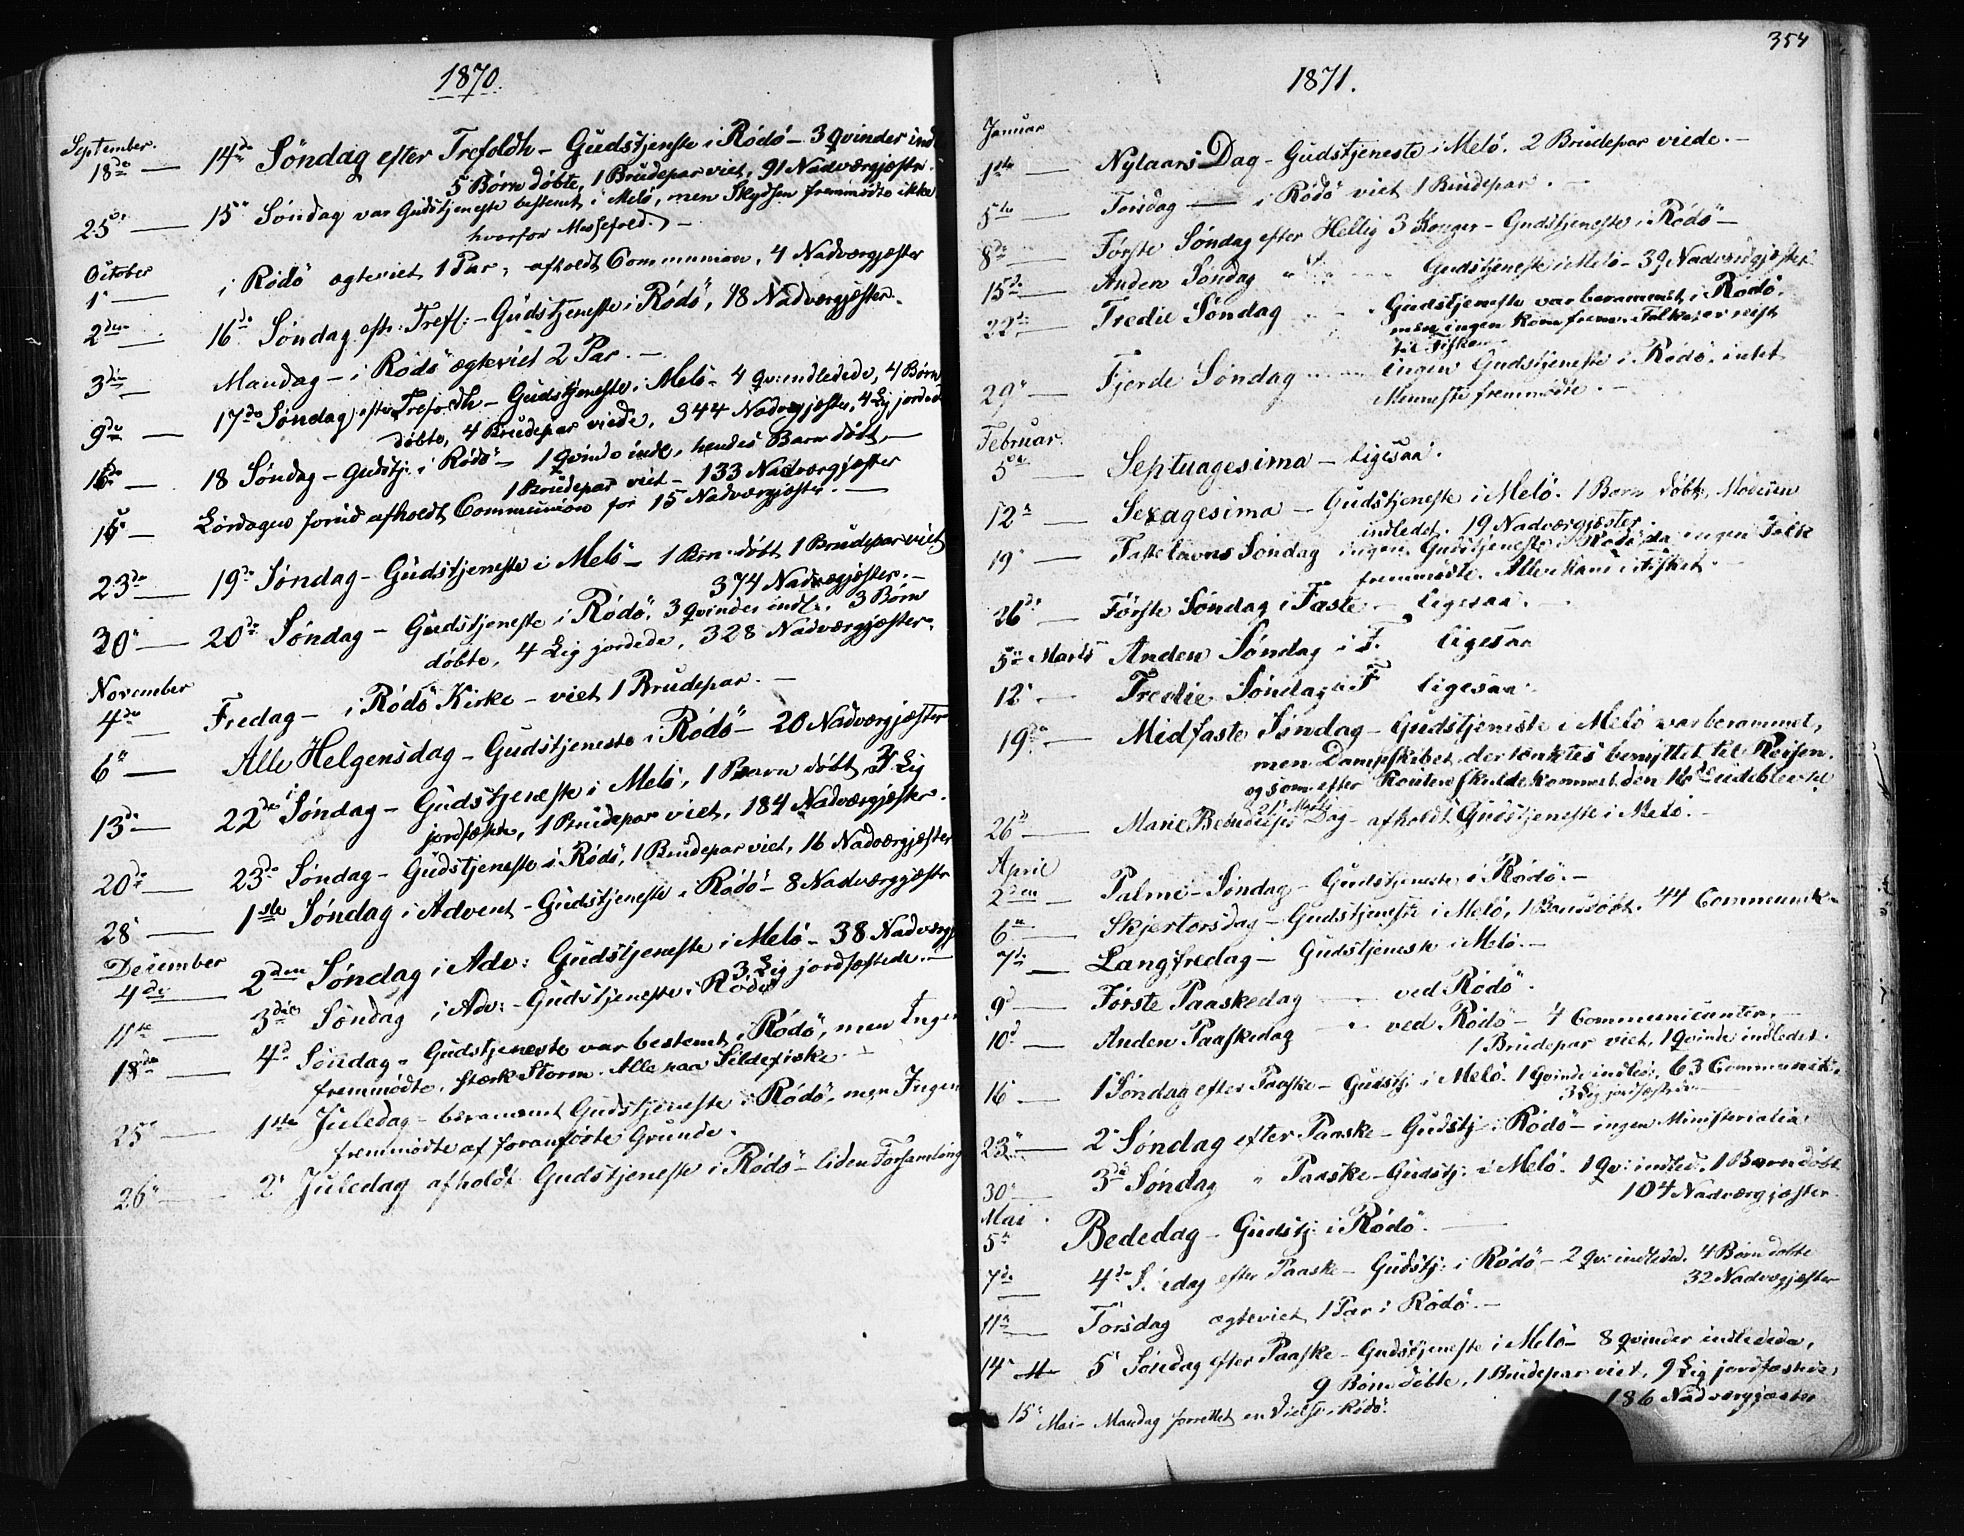 1870.
September.
18de — 14de Søndag efter Trefoldh – Gudstjeneste i Rödö – 3 Qvinder indl
5 Børn døbte, 1 Brudepar viet, 91 Nadværgjæster.
25de — 15de Søndag var Gudstjeneste bestemt i Melö, men Skydsen fremmødte ikke
hvorfor Messefald. –
October
1. — i Rödö ægteviet 1 Par, afholdt Communion, 4 Nadværgjæster
2den — 16de Søndag eft: Trefl: – Gudstjeneste i Rödö, 18 Nadværgjæster.
3die — Mandag – i Rödö ægteviet 2 Par. –
9de — 17de Søndag efter Trefoldh – Gudstjeneste i Melö – 4 Qv: indledede, 4 Børn
døbte, 4 Brudepar viede, 344 Nadvergjæster, 4 Lig jordede
16de — 18 Søndag – Gudstj: i Rödö – 1 Qvinde indl, hendes Barn døbt, –
1 Brudepar viet – 133 Nadværgjæster
15 — Lørdagen forud afholdt Communion for 15 Nadværgjæster. –
23de — 19de Søndag – Gudstjeneste i Melö – 1 Brn døbt 1 Brudepar viet
374 Nadværgjæster. –
30 — 20de Søndag – Gudstjeneste i Rödö, 3 Qvinder indl:, 3 Børn
døbte, 4 Lig jordede, 328 Nadværgjæster.
November
4de — Fredag – i Rödö Kirke – viet 1 Brudepar. –
6 — Alle Helgensdag – Gudstjeneste i Rödö – 20 Nadværgjæster
13de — 22de Søndag – Gudstjeneste i Melö, 1 Barn døbt, Lig
jordfæstede, 1 Brudepar viet, 184 Nadværgjæster.
20de — 23de Søndag – Gudstjeneste i Rödö, 1 Brudepar viet, 16 Nadværgjæster
28 — 1ste Søndag i Advent – Gudstjeneste i Rödö – 8 Nadværgjæstr
December
4de — 2den Søndag i Adv: Gudstjeneste i Melö – 38 Nadværgj
3 Lig jordfæstede. –
11te — 3die Søndag i Adv: – Gudstjeneste i Rödö
18de — 4d Søndag – Gudstjeneste var bestemt i Rödö, men Ingen
fremmødte, stærk Storm. Alle paa Sildefiske. –
25 — 1ste Juledag – berammet Gudstjeneste i Rödö, men Ingen
fremmødte af foranførte Grunde.
26 — 2 Juledag afholdt Gudstjeneste i Rödö – liden Forsamling
354
1871.
Januar
1ste — Nytaars Dag – Gudstjeneste i Melö. 2 Brudepar viede. –
5te — Torsdag — i Rödö viet 1 Brudepar. –
8de — Første Søndag efter Hellig 3 Konger – Gudstjeneste i Rödö –
15de — Anden Søndag Gudstjeneste i Melö – 39 Nadværgjæster
22de — Tredie Søndag Gudstjeneste var berammet i Rödö,
men ingen kom frem. Folket er reist
til Fisken
29 — Fjerde Søndag ingen Gudstjeneste i Rödö, intet
Menneske fremmødte. –
Februar.
5te — Septuagesima – ligesaa.
12te — Sexagesima – Gudstjeneste i Melö. 1 Barn døbt, Moderen
indledet. 19 Nadværgjæster.
19 — Fastelavns Søndag ingen Gudstjeneste i Rödö, da ingen Folk
fremmødte. Alle Mand i Fisket. –
26de — Første Søndag i Faste – ligesaa. –
5te Marts Anden Søndag i F. ligesaa
12 — Tredie Søndag i F ligesaa.
19de — Midfaste Søndag – Gudstjeneste i Melö var berammet,
men Dampskibet, der tænktes benyttet til Reisen,
og som efter Routen skulde kommet den 16de udeblev til
21 Marts
26de — Mariæ Bebudelses Dag – afholdt Gudstjeneste i Melö. –
April
2den — Palme-Søndag – Gudstjeneste i Rödö. –
6te — Skjertorsdag – Gudstjeneste i Melö, 1 Barn døbt. 44 Communik
7de — Langfredag – Gudstjeneste i Melö. –
9d — Første Paaskedag – ved Rödö.
10d — Anden Paaskedag – ved Rödö – 4 Communicanter. –
1 Brudepar viet, 1 Qvinde indledet.
16 — 1 Søndag efter Paaske – Gudstj: i Melö. 1 Qvinde indled, 63 Communik:
3 Lig jordfæstede –
23 — 2 Søndag efter Paaske – Gudstj: i Rödö – ingen Ministerialia
30 — 3de Søndag " Paaske – Gudstj: i Melö. 1 Qv: indled, 1 Barn døbt
104 Nadværgjæster.
Mai.
5te Bededag – Gudstj: i Rödö. —
7de — 4de Søndag efter Paaske – Gudstj: i Rödö – 2 Qv: indleded. 4 Børn døbte
32 Nadvergjæster
11te — Torsdag ægteviet 1 Par i Rödö. –
14 — 5 Søndag efter Paaske – Gudstjeneste i Melö – 8 Qvinder indledede,
9 Børn døbte, 1 Brudepar viet, 9 Lig jordfæstede,
186 Nadværgjæster
15 Mai – Mandag forrettet en Vielse i Rödö.